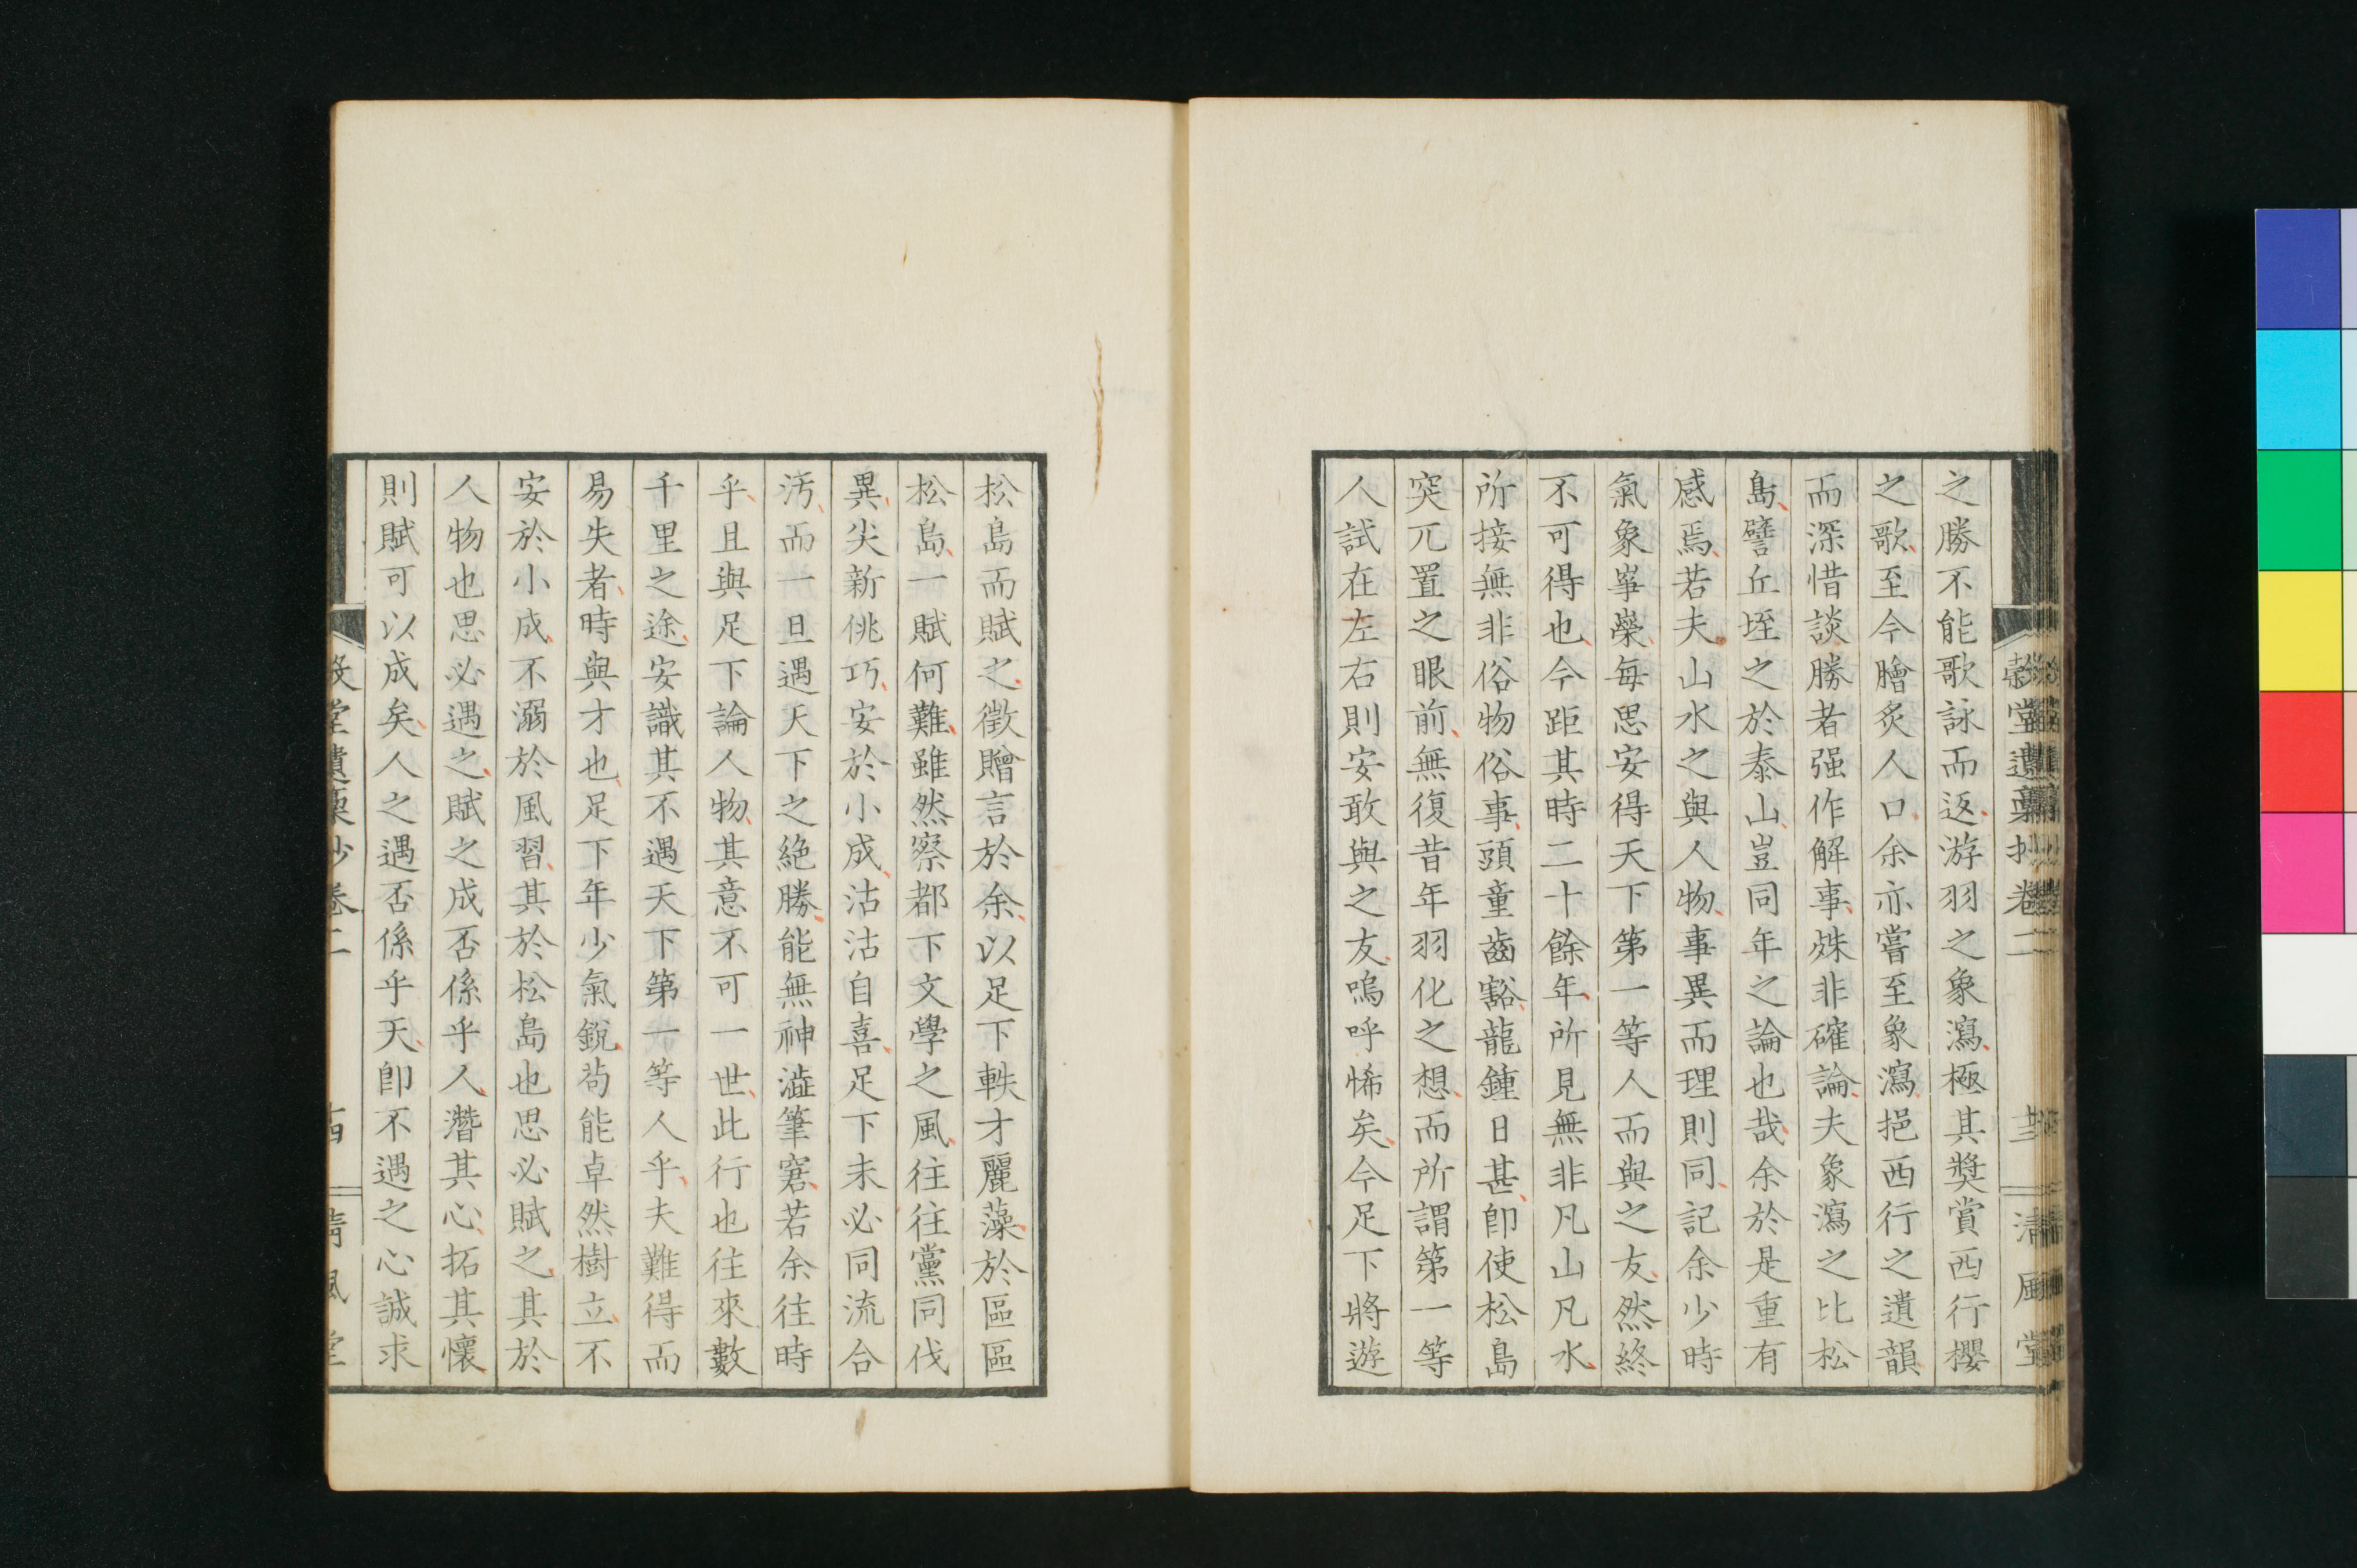 之勝不能歌詠而返游羽之象瀉極其奬賞西行櫻
之歌至今膾炙人口余亦嘗至象瀉挹西行之遺韻
而深惜談勝者强作解事殊非確論夫象瀉之比松
島譬丘垤之於泰山豈同年之論也哉余於是重有
感焉若夫山水之與人物事異而理則同記余少時
氣象崒嵂每思安得天下第一等人而與之友然終
不可得也今距其時二十餘年所見無非凡山凡水
所接無非俗物俗事頭童齒豁龍鍾日甚卽使松島
突兀置之眼前無復昔年羽化之想而所謂第一等
人試在左右則安敢與之友嗚呼悕矣今足下將遊
松島而賦之徵贈言於余以足下軼才麗藻於區區
松島一賦何難雖然察都下文學之風往往黨同伐
異尖新佻巧安於小成沾沾自喜足下未必同流合
汚而一旦遇天下之絶勝能無神澁筆窘若余往時
乎且與足下論人物其意不可一世此行也往來數
千里之途安識其不遇天下第一等人乎夫難得而
易失者時與才也足下年少氣銳苟能卓然樹立不
安於小成不溺於風習其於松島也思必賦之其於
人物也思必遇之賦之成否係乎人濳其心拓其懷
則賦可以成矣人之遇否係乎天卽不遇之心誠求
堂遺稾抄卷二 清風堂